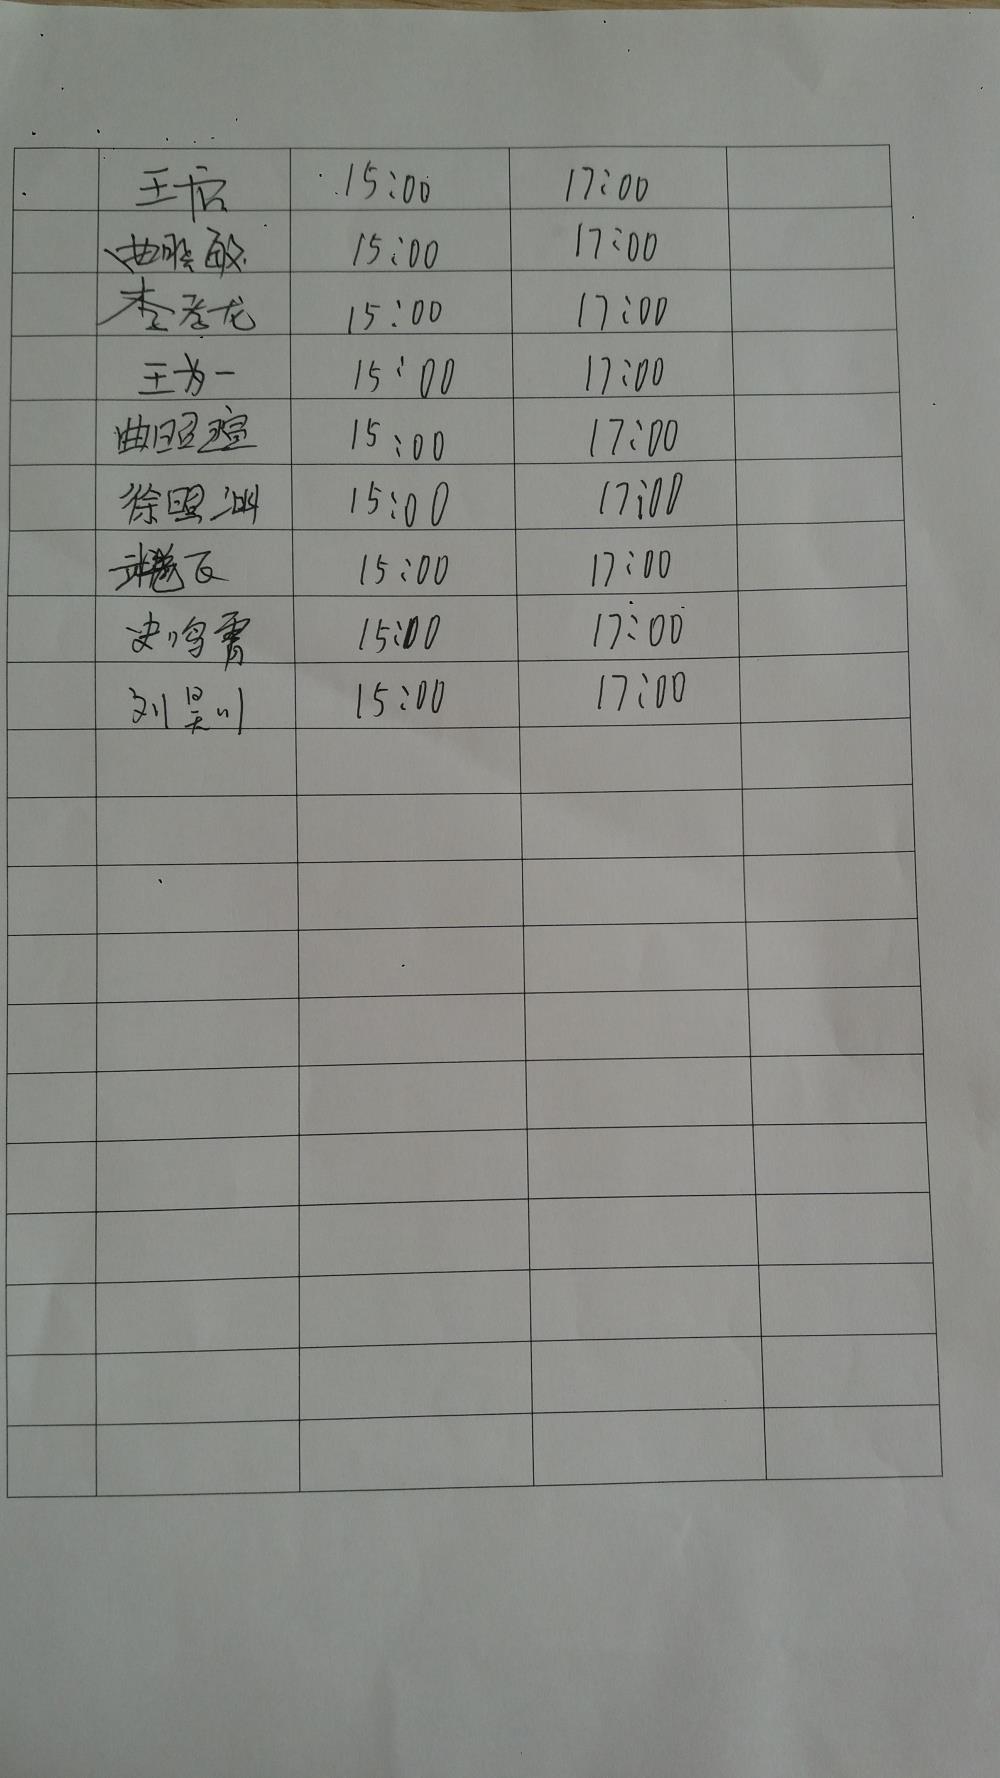 王启 15:00 17:00
曲晓敏 15:00 17:00
李孝龙 15:00 17:00
王为一 15:00 17:00
曲昭瑄 15:00 17:00
徐盟 15:00 17:00
15:00 17:00
史鸣霄 15:00 17:00
刘昊川 15:00 17:00